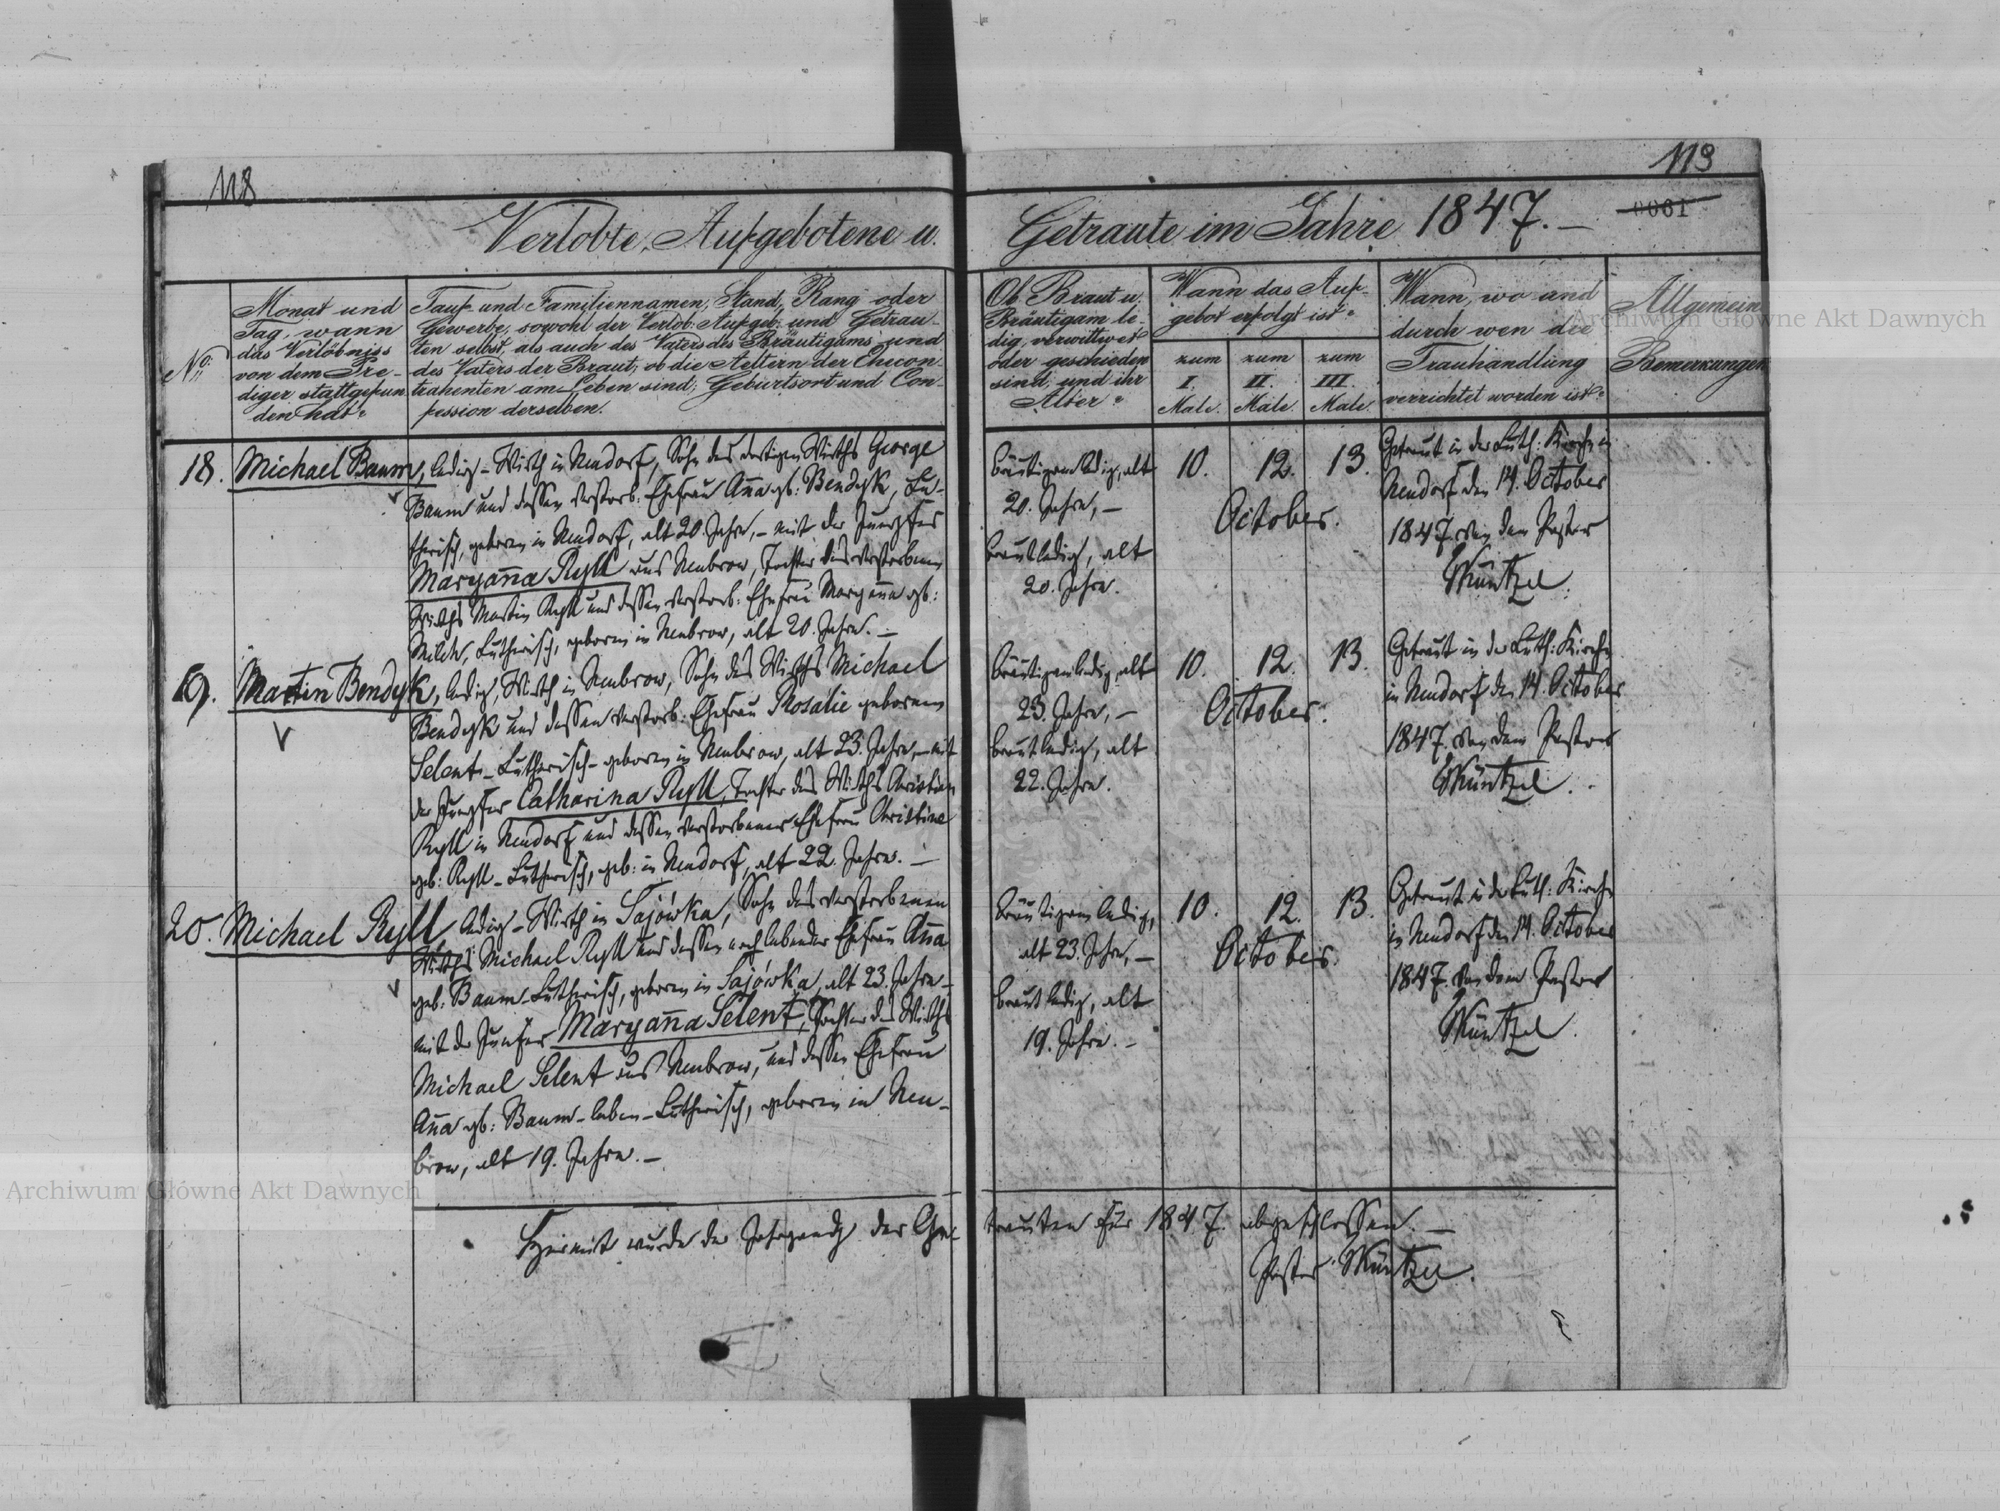 118
119
0061
Verlobte, Aufgebotene u. Getraute im Jahre 1847. –
No:
Monat und
Tag, wann
das Verlöbniss
von dem Pre-
diger stattgefun
den hat?
Tauf- und Familiennamen, Stand, Rang oder
Gewerbe, sowohl der Verlob: Aufgeb: und Getrau-
ten selbst, als auch des Vaters des Bräutigams und
des Vaters der Braut; ob die Aeltern der Checon-
trahenten am Leben sind; Geburtsort und Con-
fession derselben.
Ob Braut u.
Bräutigam le-
dig, verwittwet
oder geschieden
sind, und ihr
Alter?
Wann das Auf-
gebot erfolgt ist?
zum
I.
Male.
zum
II.
Male.
zum
III.
Male.
Wann, wo und
durch wen die
Trauhandlung
verrichtet worden ist?
Allgemeine
Bemerkungen
18. Michael Baum, ledig – Wirth in Neudorf, Sohn des dortigen Wirths George
Baum und dessen verstorb: Ehefrau Anna gb: Bendyk, Lu-
therisch, geboren in Neudorf, alt 20 Jahre, – mit der Jungfer
Maryanna Ryll aus Neubrow, Tochter des verstorbenen
Wirths Martin Ryll und dessen verstorb: Ehefrau Maryanna gb:
Milch, Lutherisch, geboren in Neubrow, alt 20. Jahre. –
Bräutigam ledig, alt
20. Jahre, –
Braut ledig, alt
20. Jahre.
10. 12. 13.
October.
Getraut in der Luth: Kirche in
Neudorf den 14. October
1847. von dem Pastor
Müntzel.
19. Martin Bendyk, ledig, Wirth in Neubrow, Sohn des Wirths Michael
Bendyk und dessen verstorb: Ehefrau Rosalie geborenen
Selent – Lutherisch – geboren in Neubrow, alt 23. Jahre, – mit
der Jungfer Catharina Ryll, Tochter des Wirths Christian
Ryll in Neudorf und dessen verstorbener Ehefrau Christine
geb: Ryll – Lutherisch, geb: in Neudorf, alt 22. Jahre. –
Bräutigam ledig, alt
23. Jahre, –
Braut ledig, alt
22. Jahre.
10. 12. 13.
October.
Getraut in der Luth: Kirche
in Neudorf den 14. October
1847. von dem Pastor
Müntzel.
20. Michael Ryll ledig – Wirth in Sajówka, Sohn des verstorbenen
Wirths Michael Ryll und dessen noch lebender Ehefrau Anna
geb: Baum – Lutherisch, geboren in Sajówka, alt 23. Jahre –
mit der Junfer Maryanna Selent, Tochter des Wirths
Michael Selent aus Neubrow, und dessen Ehefrau
Anna gb: Baum – leben – Lutherisch, geboren in Neu-
brow, alt 19. Jahre. –
Bräutigam ledig,
alt 23. Jahre, –
Braut ledig, alt
19. Jahre. –
10. 12. 13.
October.
Getraut in der Luth: Kirche
in Neudorf den 14. October
1847. von dem Pastor
Müntzel.
Hiermit wurde der Jahrgang der Ge- trauten für 1847. abgeschlossen. –
Pastor Müntzel.
Archiwum Główne Akt Dawnych
Archiwum Główne Akt Dawnych